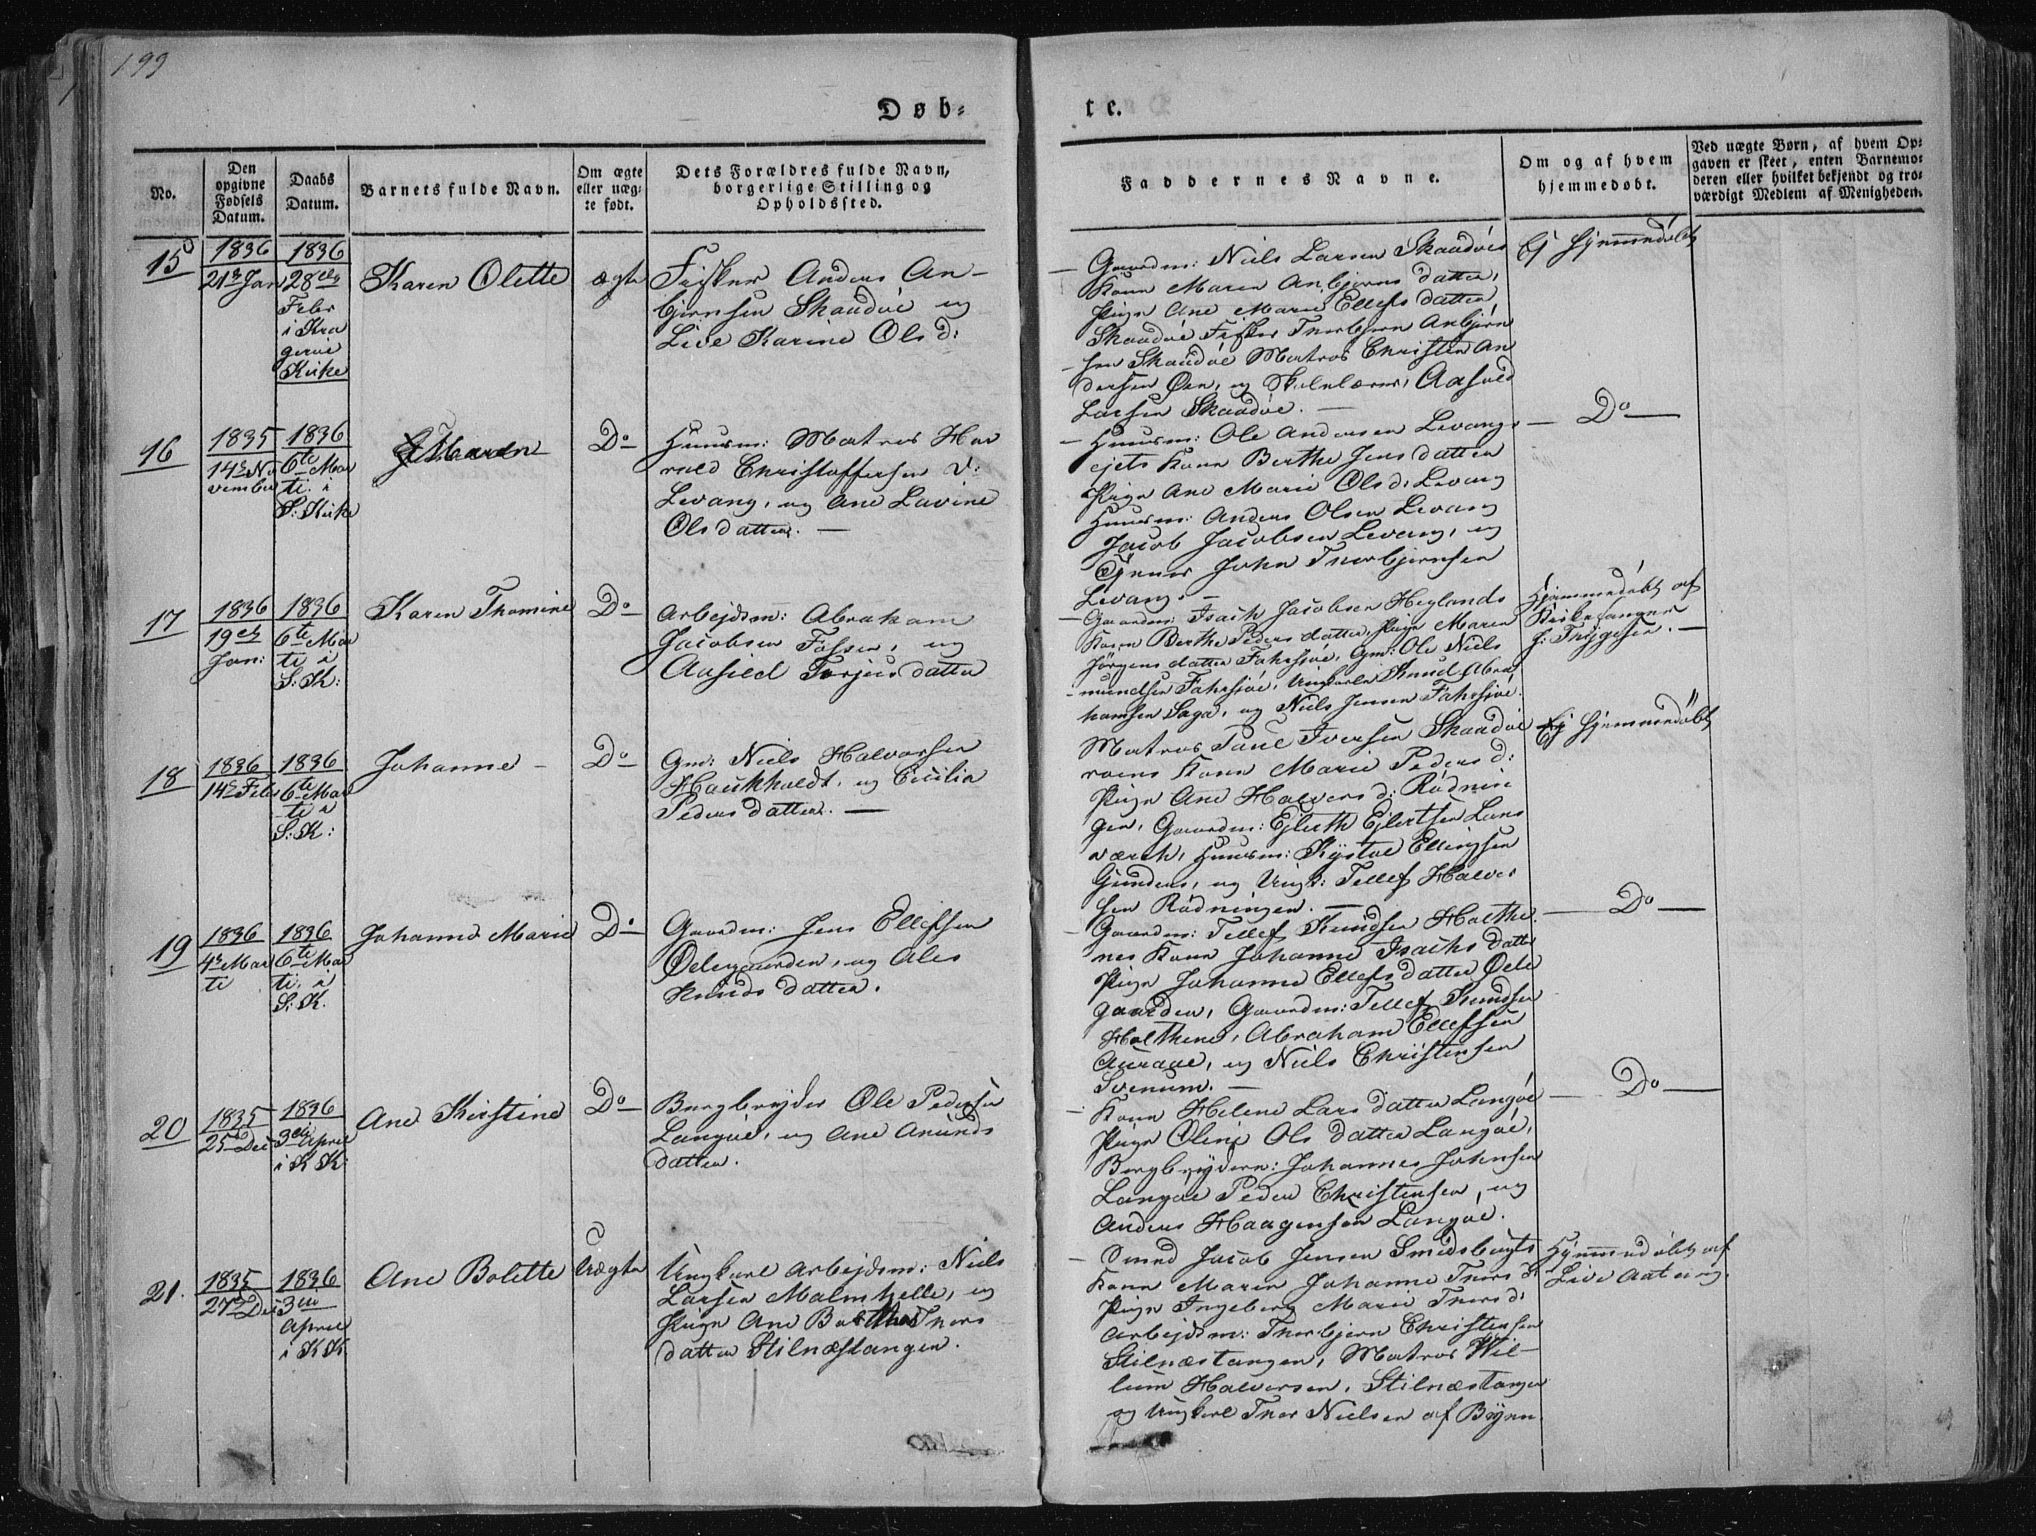 199
Døb-
te.
No.
Den opgivne Fødsels Datum.
Daabs Datum.
Barnets fulde Navn.
Om ægte eller uægte født.
Dets Forældres fulde Navn, borgerlige Stilling og Opholdssted.
Faddernes Navne.
Om og af hvem hjemmedøbt.
Ved uægte Børn, af hvem Opgaven er skeet, enten Barnemoderen eller hvilket bekjendt og troværdigt Medlem af Menigheden.
15
1836
21 Jan
1836
28
Febr
i Kra
gerøe
Kirke
Karen Olette
ægte
Fisker Anders An-
bjørnsen Skaadøe og
Live Karine Olsd:
Gaardm: Niels Larsen Skaadøes
Kone Maren Anbjørnsdatter,
Pige Ane Marie Ellefsdatter
Skaadøe Fisker Thorbjørn Anbjørn
sen Skaadøe Matros Christen An
dersen Øen, og Skolelærer, Aasold
Larsen Skaadøe.
Ej hjemmedøbt
16
1835
14 No
vember
1836
6te Mar
ti. i
S: Kirke
Maren
Do
Huusm: Matros Har
rald Christoffersen
Levang, og Ane Lavine
Olsdatter. —
Huusm: Ole Andersen Levangs
ejets Kone Berthe Jensdatter
Pige Ane Marie Olsd: Levang
Huusm: Anders Olsen Levang
Jacob Jacobsen Levang, og
Tjener John Thorbjørnsen
Levang. —
Do
17
1836
19
Jan:
1836
6te Mar
ti i
S: K:
Karen Thomine
Do
Arbejdsm: Abraham
Jacobsen Fossen, og
Aasied Torjusdatter
Gaardm: Isach Jacobsen Heglands
Kone Berthe Pedersdatter, Pige Maren
Jørgensdatter Fahrsjøe, Gm: Ole Niels
Fahrsjøe, Ungkarle Knud Abra
hamsen Saga, og Niels Jensen Fahrsjøe.
Hjemmedøbt af
Kirkesanger
J: Tryggesen. —
18
1836
14 Febr
1836
6te Mar
ti i
S: K:
Johanne —
Do
Gm: Niels Halvorsen
Haukholdt, og Cicilia
Pedersdatter. —
Matros Povel Iversen Skaadøe
roens Kone Marie Pedersd:
Pige Ane Halvorsd: Rødnin
gen, Gaardm: Ejlerth Ejlertsen Lons
værck, Huusm: Kystol Ellingsen
og Ungk: Tellef Halvor
sen Rødningen. —
Ej hjemmedøbt
19
1836
4 Mar
ti
1836
6te Mar
ti. i
S: K.
Johanne Marie
Do
Gaardm: Jens Ellefsen
Ødegaarden, og Ales
Knudsdatter.
Gaardm: Tellef Knudsen Holthe
nes Kone Johanne Isachsdatter
Pige Johanne Ellefsdatter Øde
gaarden, Gaardm: Tellef Knudsen
Holthene, Abraham Ellefsen
Auraae, og Niels Christensen
Svenum. —
Do
20
1835
25 Dec
1836
3 April
i K K:
Ane Kirstine
Do
Bergbryder Ole Pedersen
Langøe, og Ane Anunds
datter.
Kone Helene Larsdatter Langøe
Pige Oline Olsdatter Langøe,
Bergbryderne: Johannes Johnsen
Langøe Peder Christensen, og
Anders Haagensen Langøe.
Do
21.
1835
27 Dec
1836
3
April
i K K
Ane Bolette
Uægte
Ungkarl Arbejdsm: Niels
Larsen Malmhelle, og
Pige Ane Thors
datter Stilnæstangen.
Smed Jacob Jensen Smidsbugts
Kone Maren Johanne Thorsd:
Pige Ingeborg Marie Thorsd:
Arbejdsm: Thorbjørn Christensen
Stilnæstangen, Matros Wil-
lum Halvorsen, Stilnæstangen
og Ungkarl Thor Nielsen af Byen.
Hjemmedøbt af
Live